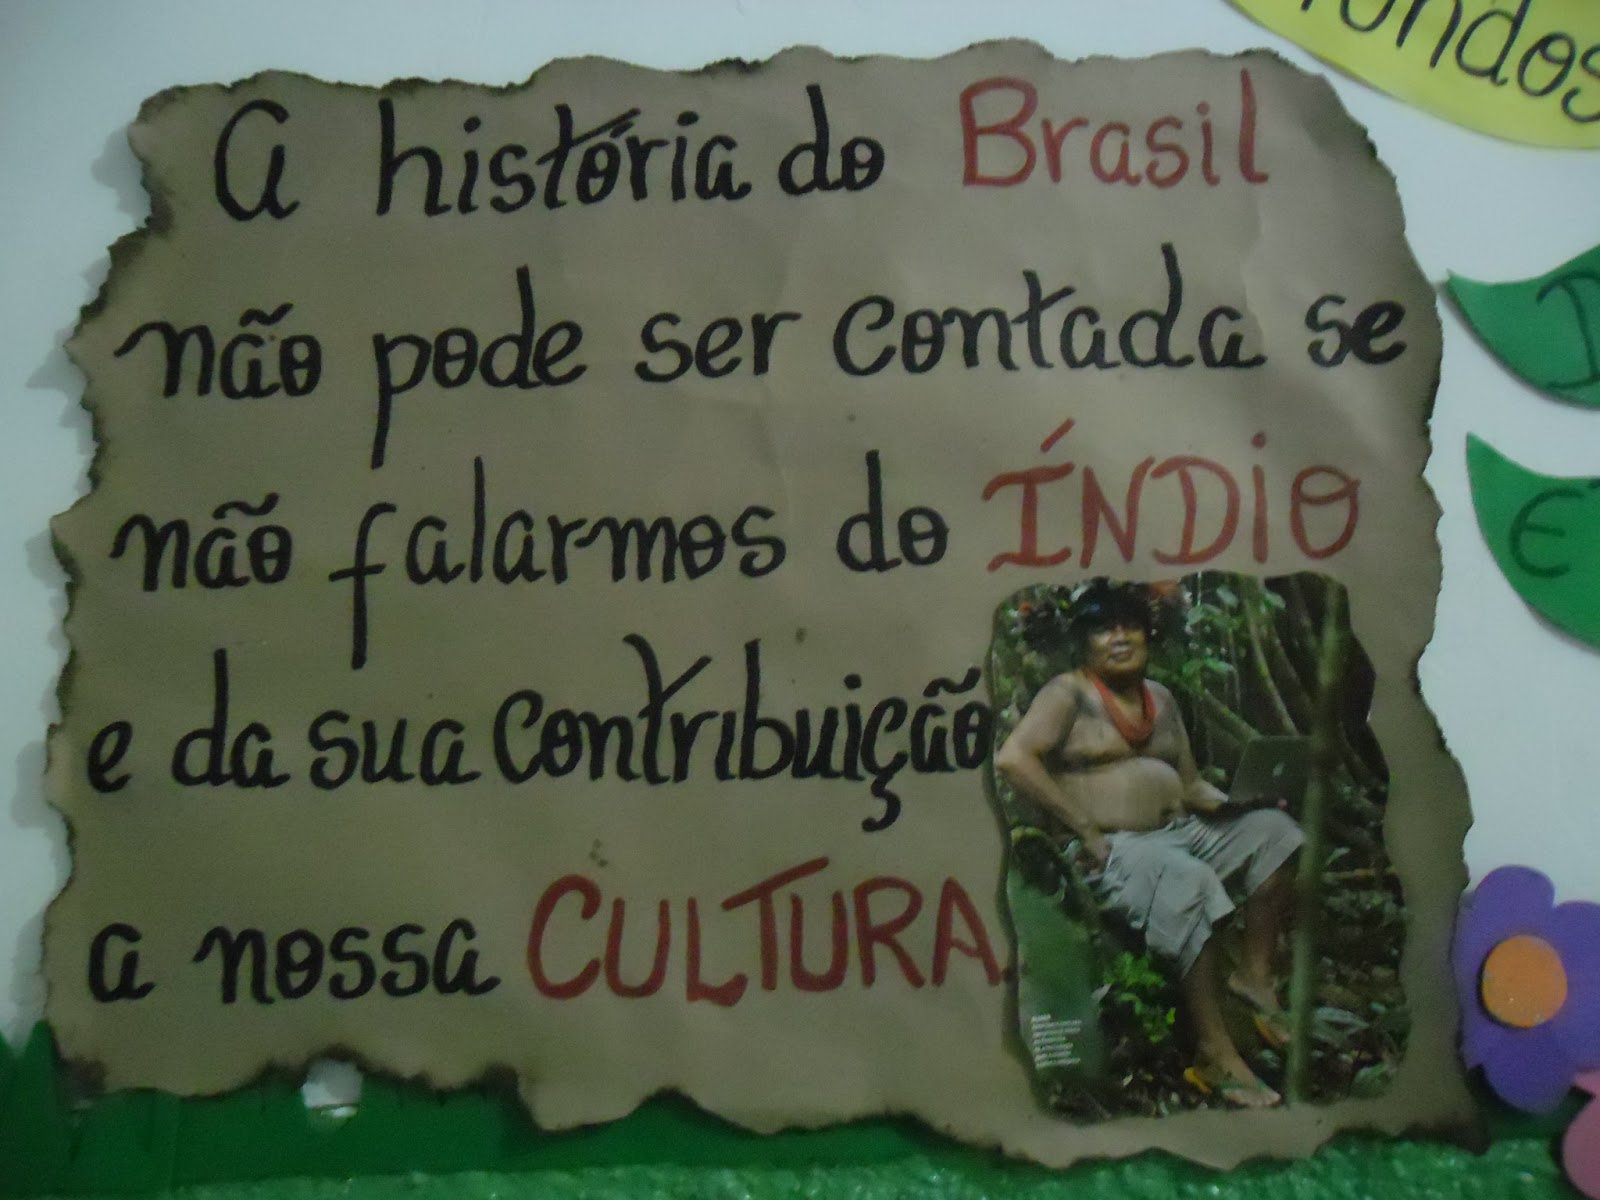 A história do Brasil
não pode ser contada se
não falarmos do ÍNDiO
e da sua contribuição
a nossa CULTURA.